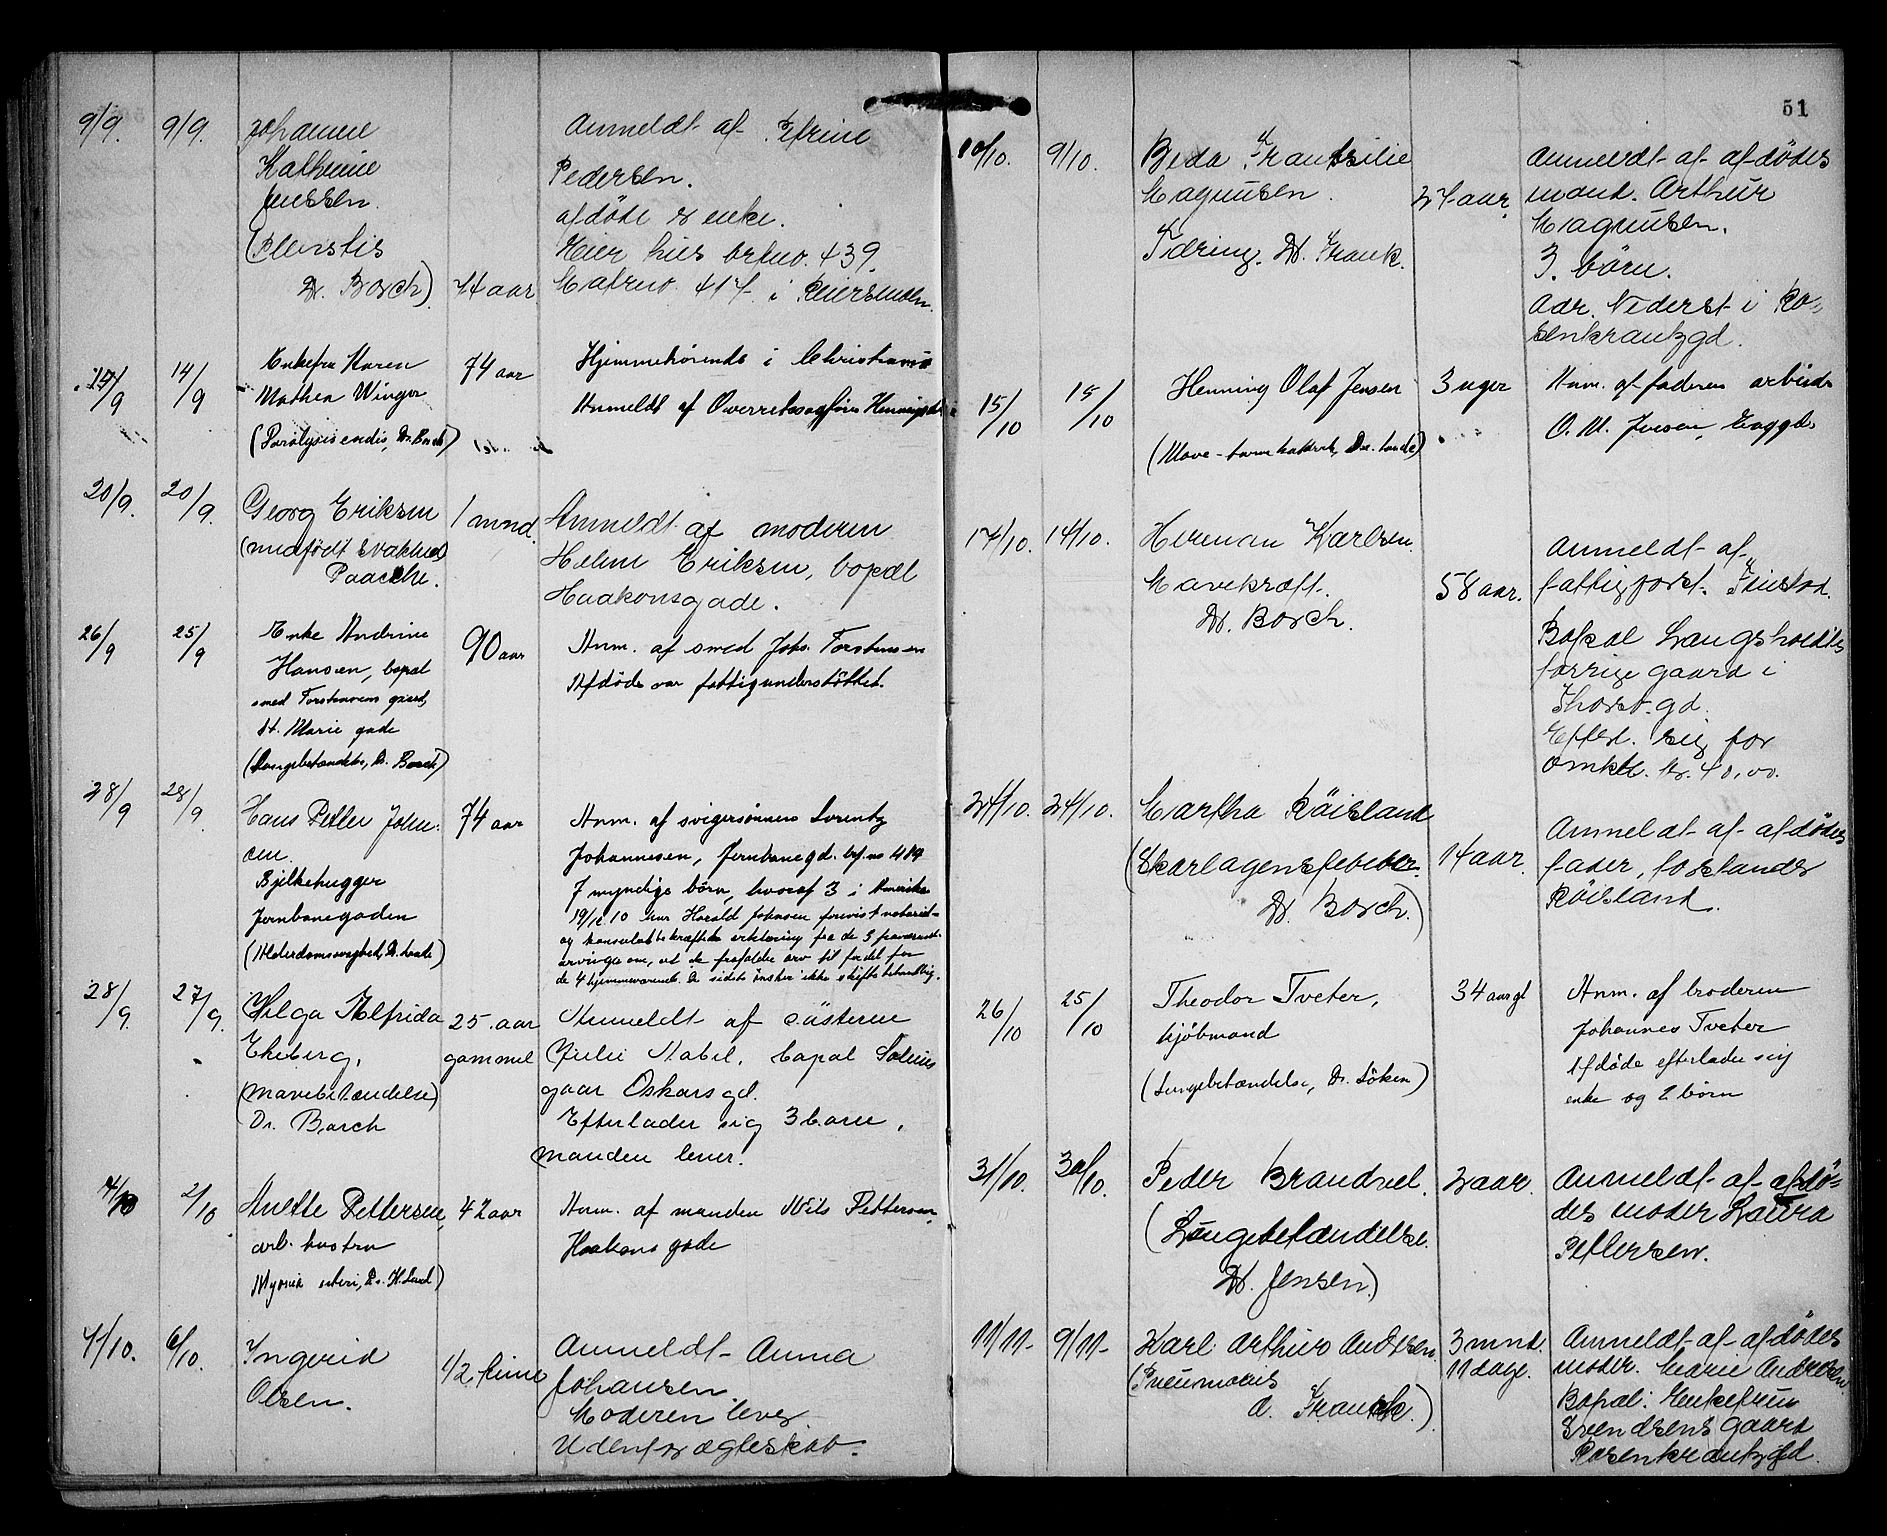 9/9. 9/9. Johanne
Kathrine
Jenssen.
(
Dr. Borch) 74 aar
Anmeldt af Petrine
Pedersen.
afdöde er enke.
Eier hus brtno. 439.
Matrno. 417 i
14/9 14/9 Enkefru Karen
Mathea Winger
(Paralysis cordis, Dr. Borch)
74 aar
Hjemmehørende i Christiania
Anmeldt af Overretssagfører
20/9. 20/9. Georg Eriksen
(medfödt svakhed
Paasche.
1 mnd.
Anmeldt af moderen
Helene Eriksen, bopæl
Haakonsgade.
26/9 25/9 Enke Andrine
Hansen, bopæl
smed Torstensens gaard,
St. Marie gade
(Lungebetændelse, Dr. Borch)
90 aar
Anm. af smed Johs. Torstensen
Afdöde var fattigunderstöttet.
28/9 28/9. Hans Petter John-
sen.
Bjelkehugger
Jernbanegaden
(Alderdomssvaghed, Dr. Lunde)
74 aar
Anm. af svigersönnen Lorentz
Johannesen, Jernbanegd. brt.no 484
7 myndige börn, hvoraf 3 i Amerika
19/12 10 har Harald Johnsen forevist notarial-
og konsulatsbekræftede erklæring fra de 3 fraværende
arvinge om, at de frafalder arv til fordel for
de 4 hjemmeværende. De sidste önsker ikke skiftebehandling.
28/9. 27/9. Helga Alfrida
Ekeberg.
(mavebetændelse)
Dr. Borch
25. aar
gammel
Anmeldt af süsteren
Julie Nabel, bopæl
gaar Oskars gd.
Efterlader sig 3 barn,
manden lever.
4/10 2/10 Anette Pettersen,
arb. hustru
(Myoma uteri, Dr. H. Lund)
42 aar
Anm. af manden Nils Pettersen,
Haakons gade
7/10. 6/10. Ingerid
Olsen.
1/2 time
Anmeldt Anna
Johansen.
Moderen lever.
Udenfor ægteskab.
51
10/10. 9/10. Beda Frantsilie
Magnusen.
Tæring. Dr. Frank.
27 aar.
Anmeldt af afdödes
mand. Arthur
Magnusen.
3. börn.
Adr. Nederst i Ro-
senkrantzgd.
15/10 15/10 Henning Olaf Jensen
(Mave-tarmkatarrh, Dr. Lunde)
3 uger
Anm. af faderen arbeider
O. M. Jensen,
17/10. 14/10. Herman Karlsen.
Mavekræft.
Dr. Borch.
58 aar.
Anmeldt af
fattigforst.
Bopæl Langsholdts
forrige gaard i
gd.
Efterl. sig for
omktr. kr. 40,00.
24/10. 24/10. Martha Röisland
(Skarlagensfeber
Dr. Borch.)
14 aar.
Anmeldt af afdödes
fader, forstander
Röisland.
26/10 25/10 Theodor Tveter,
kjöbmand
(Lungebetændelse, Dr. Söken)
34 aar gl
Anm. af broderen
Johannes Tveter
Afdöde efterlader sig
enke og 2 börn
31/10. 30/10. Peder Brandvel.
(Lungebetændelse.
Dr. Jensen.)
2 aar.
Anmeldt af afdö-
des moder Laura
Pettersen.
11/11- 9/11- Karl Arthur Andresen.
(Pneumonis
d. Franck.)
3 mnd.
11 dage.
Anmeldt af afdödes
moder. Marie Andresen.
Bopæl: Enkefru
Svendsens gaard
Rosenkrantzgd.